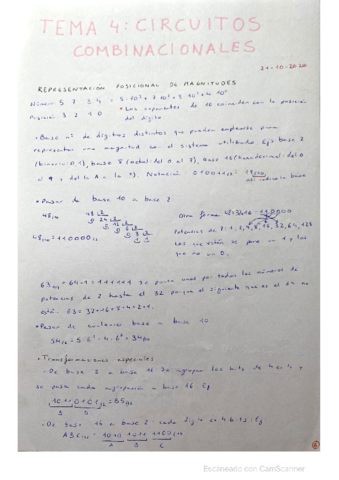 TEMA 4: CIRCUITOS
COMBINACIONALES
21-10-2020
REPRESENTACIÓN POSICIONAL DE MAGNITUDES
Número 5 7 3 4 = 5·10³ + 7·10² + 3·10¹ + 4·10⁰
Posición 3 2 1 0 Los exponentes de 10 coinciden con la posición
del dígito
• Base nº de dígitos distintos que pueden emplearse para
representar una magnitud con el sistema utilizado Ej: base 2
(binario 0,1), base 8 (octal: del 0 al 7), base 16 (hexadecimal: del 0
al 9 y del A a la F). Notación:
indica la base
• Pasar de base 10 a base 2
Otra forma
Potencias de 2: 1, 2, 4, 8, 16, 32, 64, 128
Los que estén se pone un 1 y los
que no un 0.
48₁₀ = 110000₂
63₁₀ = 64-1 = 111111 se ponen unos por todos los números de
potencias de 2 hasta el 32 porque el siguiente que es el 64 no
está. 63 = 32+16+8+4+2+1
• Pasar de cualquier base a base 10
• Transformaciones especiales
- De base 2 a base 16 se agrupan los bits de 4 en 4 y
se pasa cada agrupación a base 16. Ej
- De base 16 a base 2 cada dígito es 4 bits: Ej
Escaneado con CamScanner